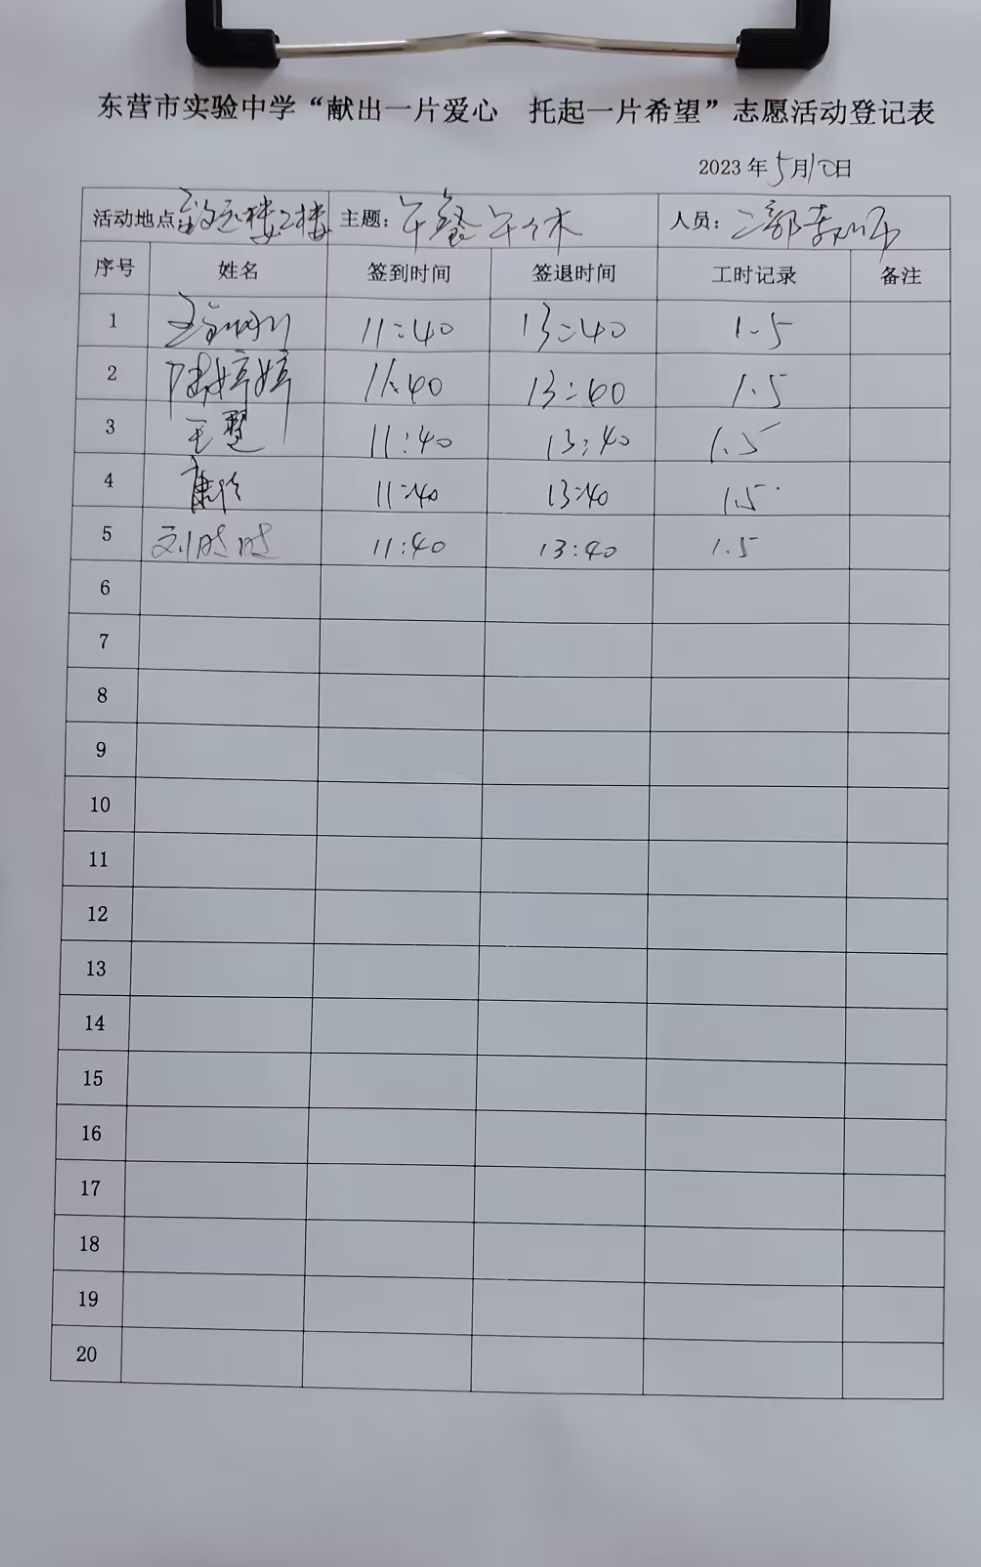 东营市实验中学“献出一片爱心 托起一片希望”志愿活动登记表
2023年5月10日
活动地点 致远楼2楼 主题: 午餐午休 人员: 二部教师
序号 姓名 签到时间 签退时间 工时记录 备注
1 11:40 13:40 1.5
2 陈婷婷 11:40 13:40 1.5
3 王慧 11:40 13:40 1.5
4 康 11:40 13:40 1.5
5 刘时时 11:40 13:40 1.5
6
7
8
9
10
11
12
13
14
15
16
17
18
19
20